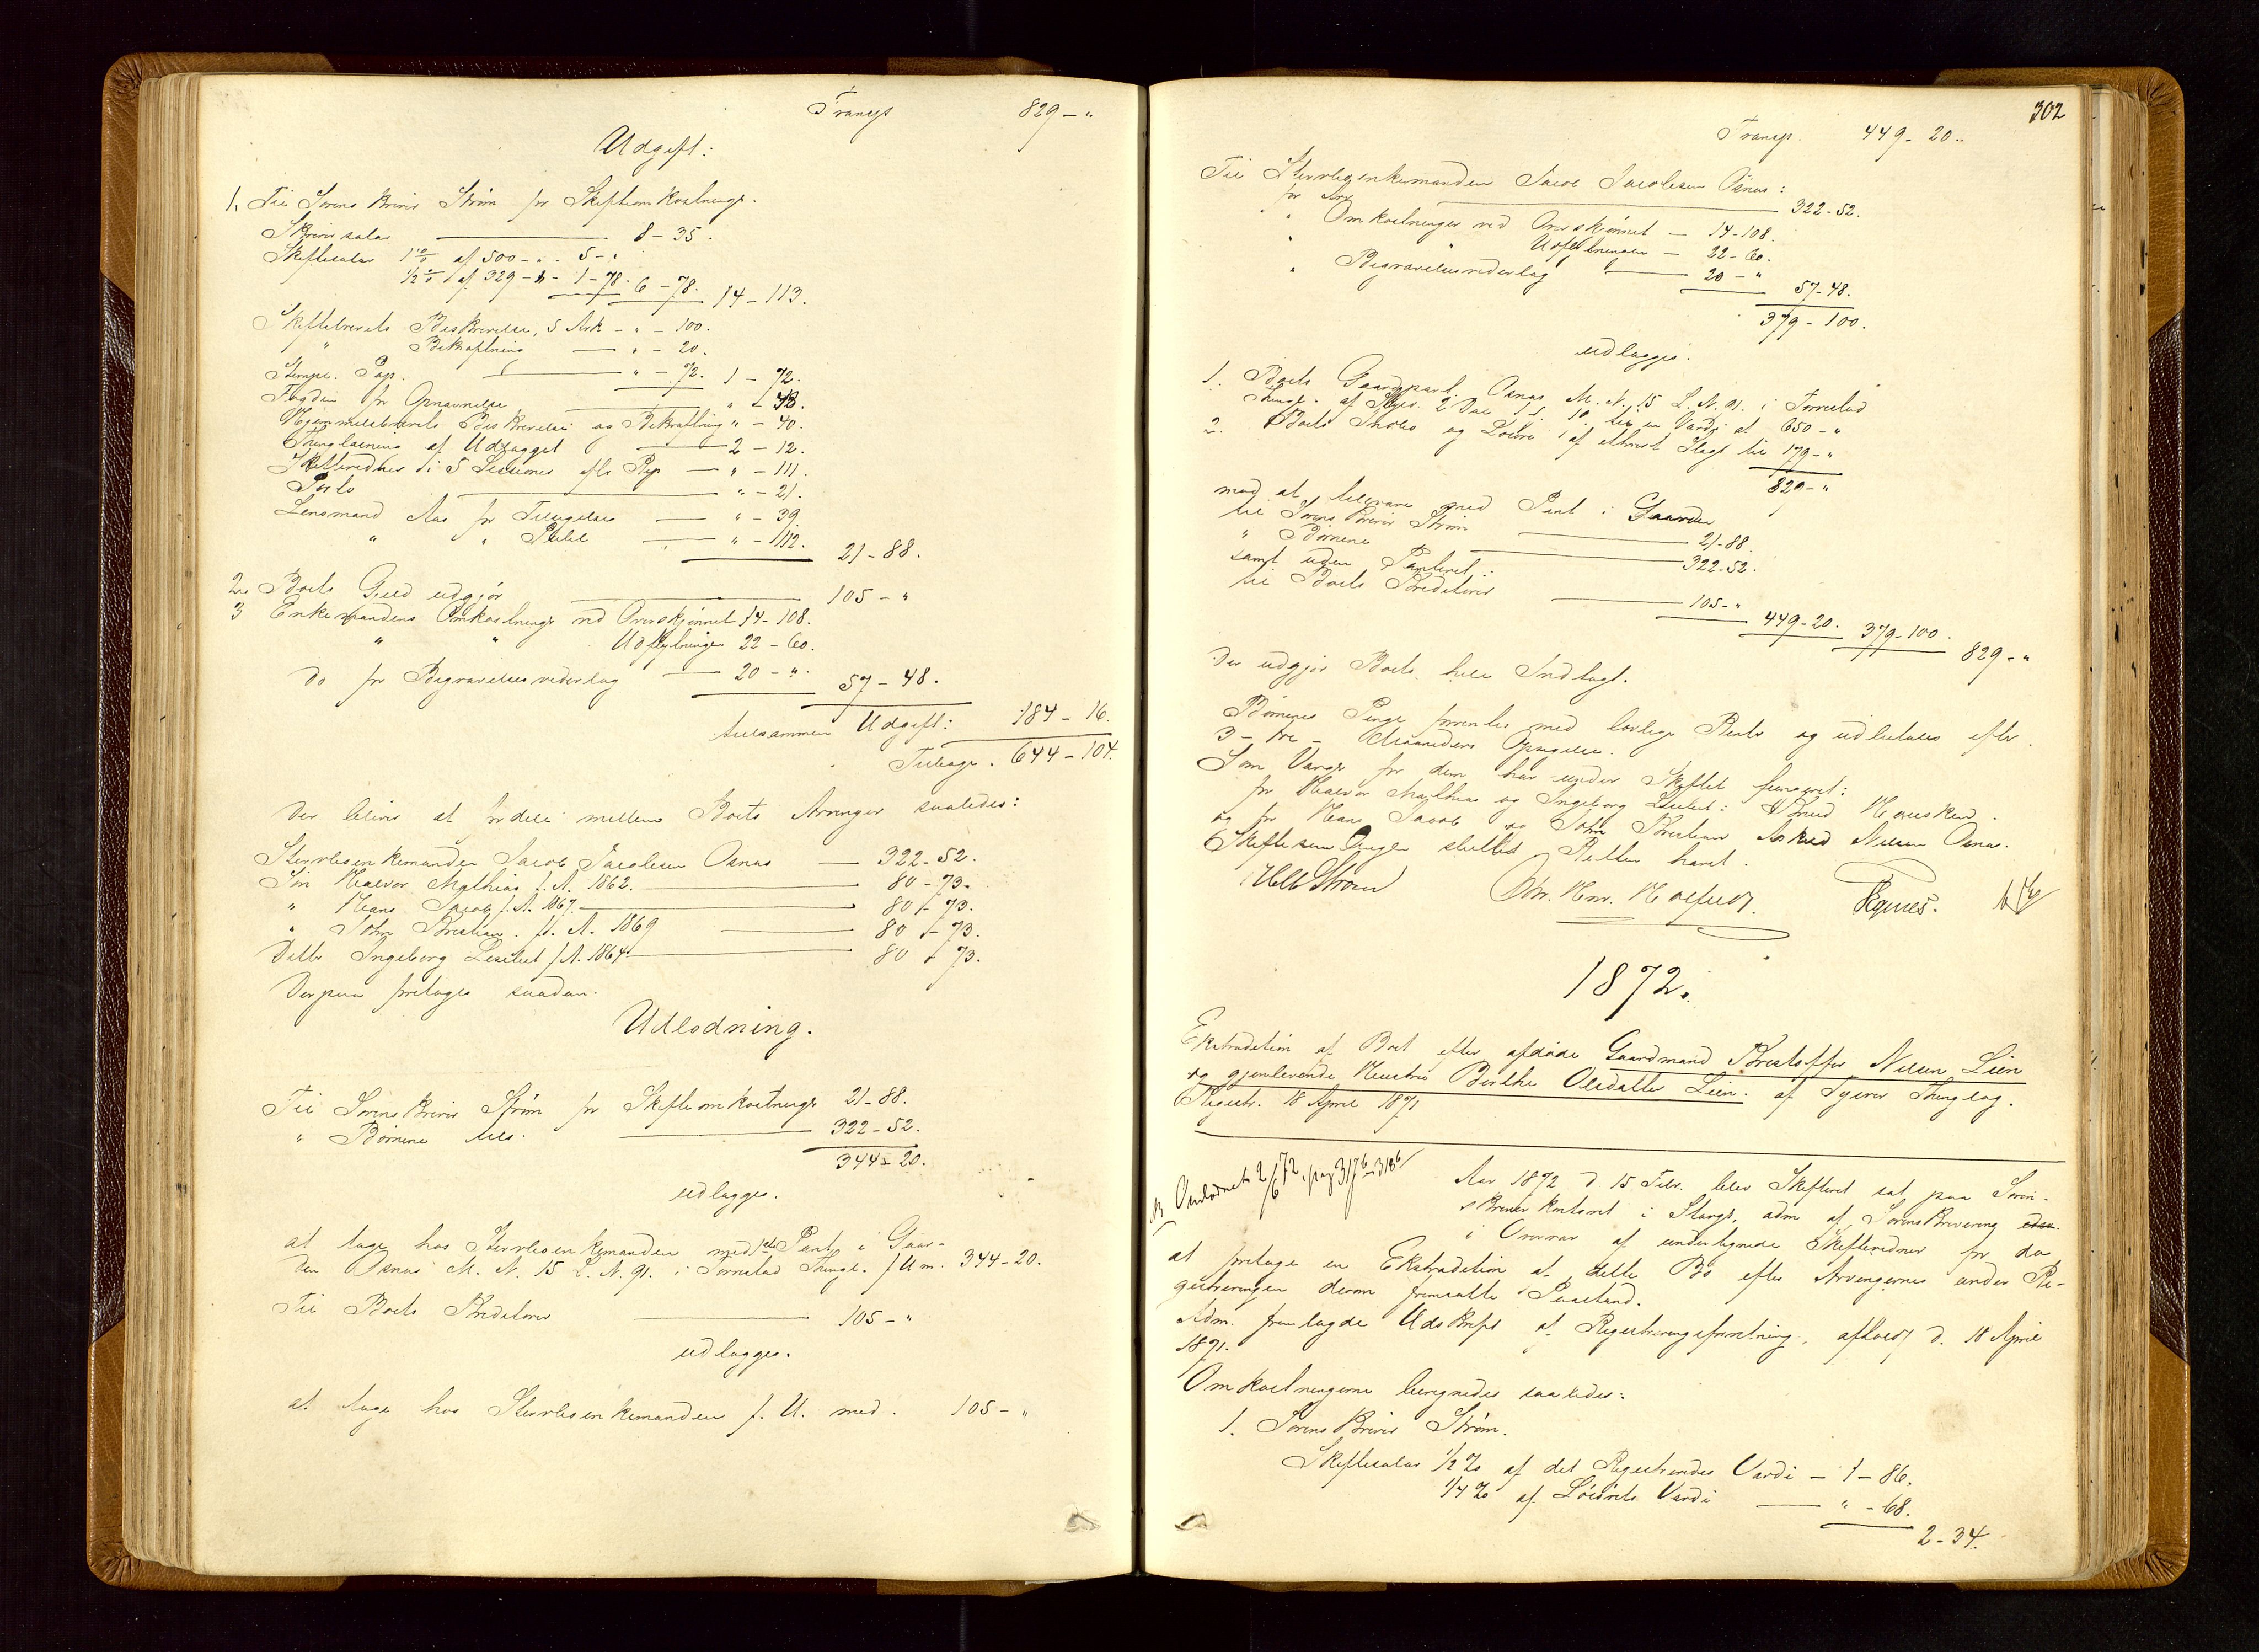 Transp 829 - "
Udgift:
1. Til Sorenskriver Strøm for Skifteomkostninger.
Skriversalær 8 - 35.
Skiftesalær 1 % af 500 - " - 5 - "
1/2 % af 329 - " - 1 - 78. 6 - 78. 14 - 113.
Skiftebrevets Beskrivelse, 5 Ark - " - 100.
" Bekræftning - " - 20.
Stempl. Pap. " - 72. 1 - 72.
Fogden for Opnævnelse " - 48.
Hjemmelsbrevets Beskrivelse og Bekræftning " - 40.
Thinglæsning af Udlægget 2 - 12.
Skiftevidner i 5 Sessioner efter Rep - " - 111.
Porto " - 21.
Lensmand Aas for Tilsigelse - " - 39.
" " - " - 112. 21 - 88.
2. Boets Gjeld udgjør 105 - "
3 Enkemandens Omkostninger ved Overskjønnet 14 - 108.
" " Udflytningen 22 - 60.
Do for Begravelsesvederlag 20 - ". 57 - 48.
tilsammen Udgift: 184 - 16.
Tilbage. 644 - 104.
Der bliver at fordele mellem Boets Arvinger saaledes:
Stervbosenkemanden Jacob Jacobsen Osnæs - 322 - 52.
Søn Halvor Mathias f. A. 1862. 80 - 73.
" Hans Jacob f. A. 1867. 80 - 73.
" John Kristian f. A. 1869 80 - 73.
Datter Ingeborg Lisebet f. A. 1864 80 - 73.
Derpaa foretages saadan
Udlodning.
Til Sorenskriver Strøm for Skifteomkostninger 21 - 88.
" Børnene tils. 322 - 52.
344 - 20.
udlægges.
at tage hos Stervbosenkemanden med 1ste Pant i Gaar-
den Osnæs M. N. 15 L. N. 91. i Tørrestad Thingl. f U m. 344 - 20.
Til Boets Kreditorer 105 - "
udlægges.
at tage hos Stervbosenkemanden f. U. med. 105 - "
302
Transp. 449 - 20.
Til Stervbosenkemanden Jacob Jacobsen Osnæs:
for Arv 322 - 52.
" Omkostninger ved Overskjønnet - 14 - 108.
" " Udflytningen - 22 - 60.
" Begravelsesvederlag 20 - " 57 - 48.
379 - 100.
udlægges.
1. Boets Gaardpart Osnæs M. N. 15 L. N. 91. i Tørrestad
Thingl. af Skyld 2 Dal 1 10 til en Værdi af 650 - "
2. Boets Indbo og Løsøre af ethvert Slags til 179 - "
829 - "
mod at tilsvare med Pant i Gaarden
til Sorenskriver Strøm 21 - 88.
" Børnene 322 - 52.
samt uden Panteret:
til Boets Kreditorer 105 - " 449 - 20. 379 - 100. 829 - "
Der udgjør Boets hele Indtægt.
Børnenes Penge forrentes med lovlige Renter og udbetales efter
3 - tre - Maaneders Opsigelse.
Som Værge for dem har under Skiftet fungeret:
for Halvor Mathias og Ingeborg Lisebet: Knud
og for Hans Jacob og John Kristian Nielsen Osnæs.
Skiftesamlingen sluttet Retten hævet.
Strøm Chr. Henr.
1872.
Extradition af Boet efter afdøde Gaardmand Kristoffer Nilsen Lien
og gjenlevende Hustru Berthe Olesdatter Lien. af Thinglag.
Registr. 18 April 1871
NB Omlodnet 2/6 72. pag 317 - 318
Aar 1872 d. 15 Febr. blev Skifteret sat paa Soren-
skriverkontoret i Stange, adm af Sorenskriveren
i Overvær af undertegnede Skiftevidner for der
at foretage en Extradition af dette Bo efter Arvingernes under Re-
gistreringen derom fremsatte Paastand.
Adm. fremlagde Udskrift af Registreringsforretning, afholdt d. 18 April
1871.
Omkostningerne beregnedes saaledes:
1. Sorenskriver Strøm.
Skiftesalær 1/2 % af det Registreredes Værdi - 1 - 86.
1/4 % af Løsørets Værdi " - 68.
2 - 34.